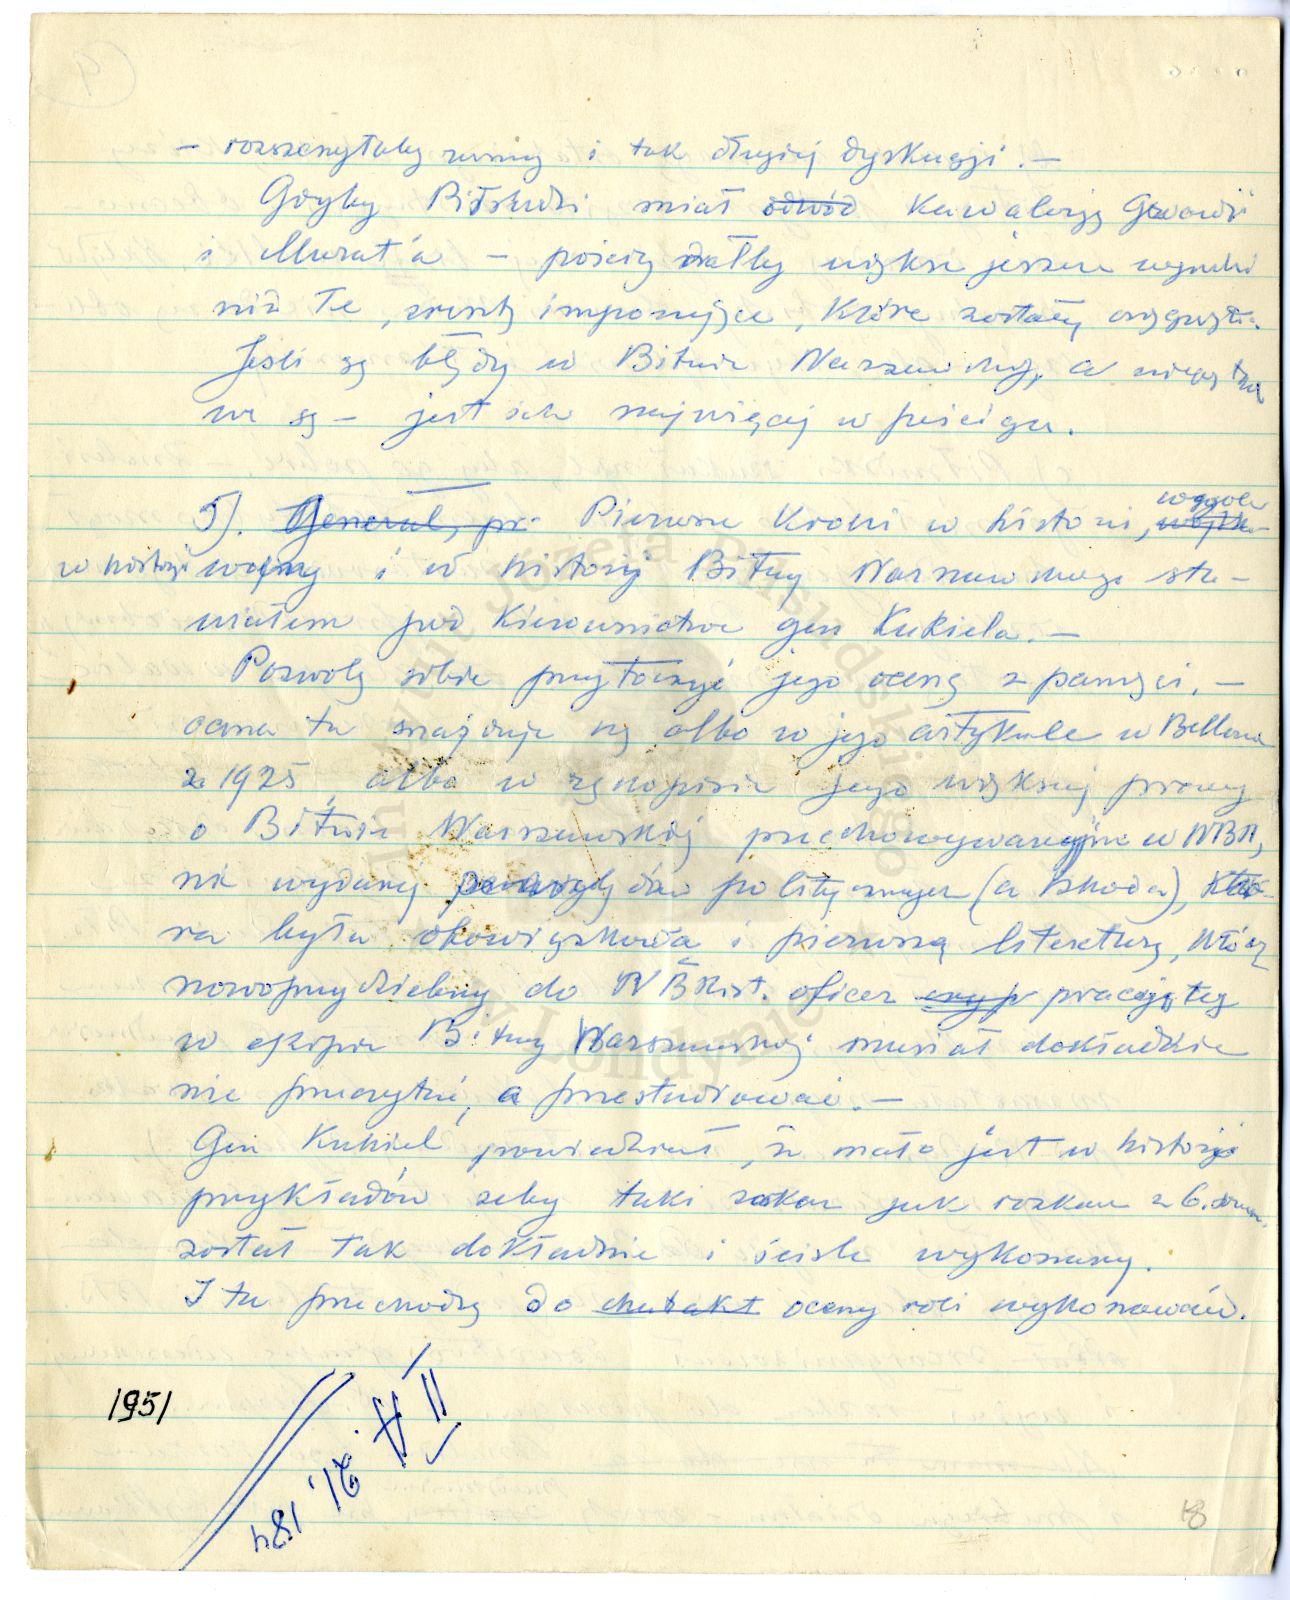 — rozszerzyłaby ramy i tak długiej dyskusji. —
Gdyby Piłsudski miał odwód Kawalerję Gwardji
i Murat'a — pościg dałby większe jeszcze wyniki
niż Te, zresztą imponujące, które zostały osiągnięte.
Jeśli są błędy w Bitwie Warszawskiej, a niewąt
we są — jest ich najwięcej w pościgu.
5). Generał, pr Pierwsze Kroki w historii, wogóle
w historji wojny i w historji Bitwy Warszawskiej sta-
wiałem pod Kierownictwem gen Kukiela. —
Pozwolę sobie przytoczyć jego ocenę z pamięci, —
ocena ta znajduje się albo w jego artykule w Bellonie
z 1925, albo w rękopisie jego większej pracy
o Bitwie Warszawskiej przechowywanej w WBH,
nie wydanej politycznych (a szkoda), któ-
ra była obowiązkową i pierwszą literaturą, którą
nowoprzydzielony do W B Hist. oficer pracujący
w ekipie Bitwy Warszawskiej musiał dokładnie
nie przeczytać, a przestudiować. —
Gen Kukiel powiedział, że mało jest w historji
przykładów żeby taki rozkaz jak rozkaz z 6. sierp.
został tak dokładnie i ściśle wykonany.
I tu przechodzę do charakt oceny roli wykonawców.
1951
184
18
Instytut Józefa Piłsudskiego
w Londynie